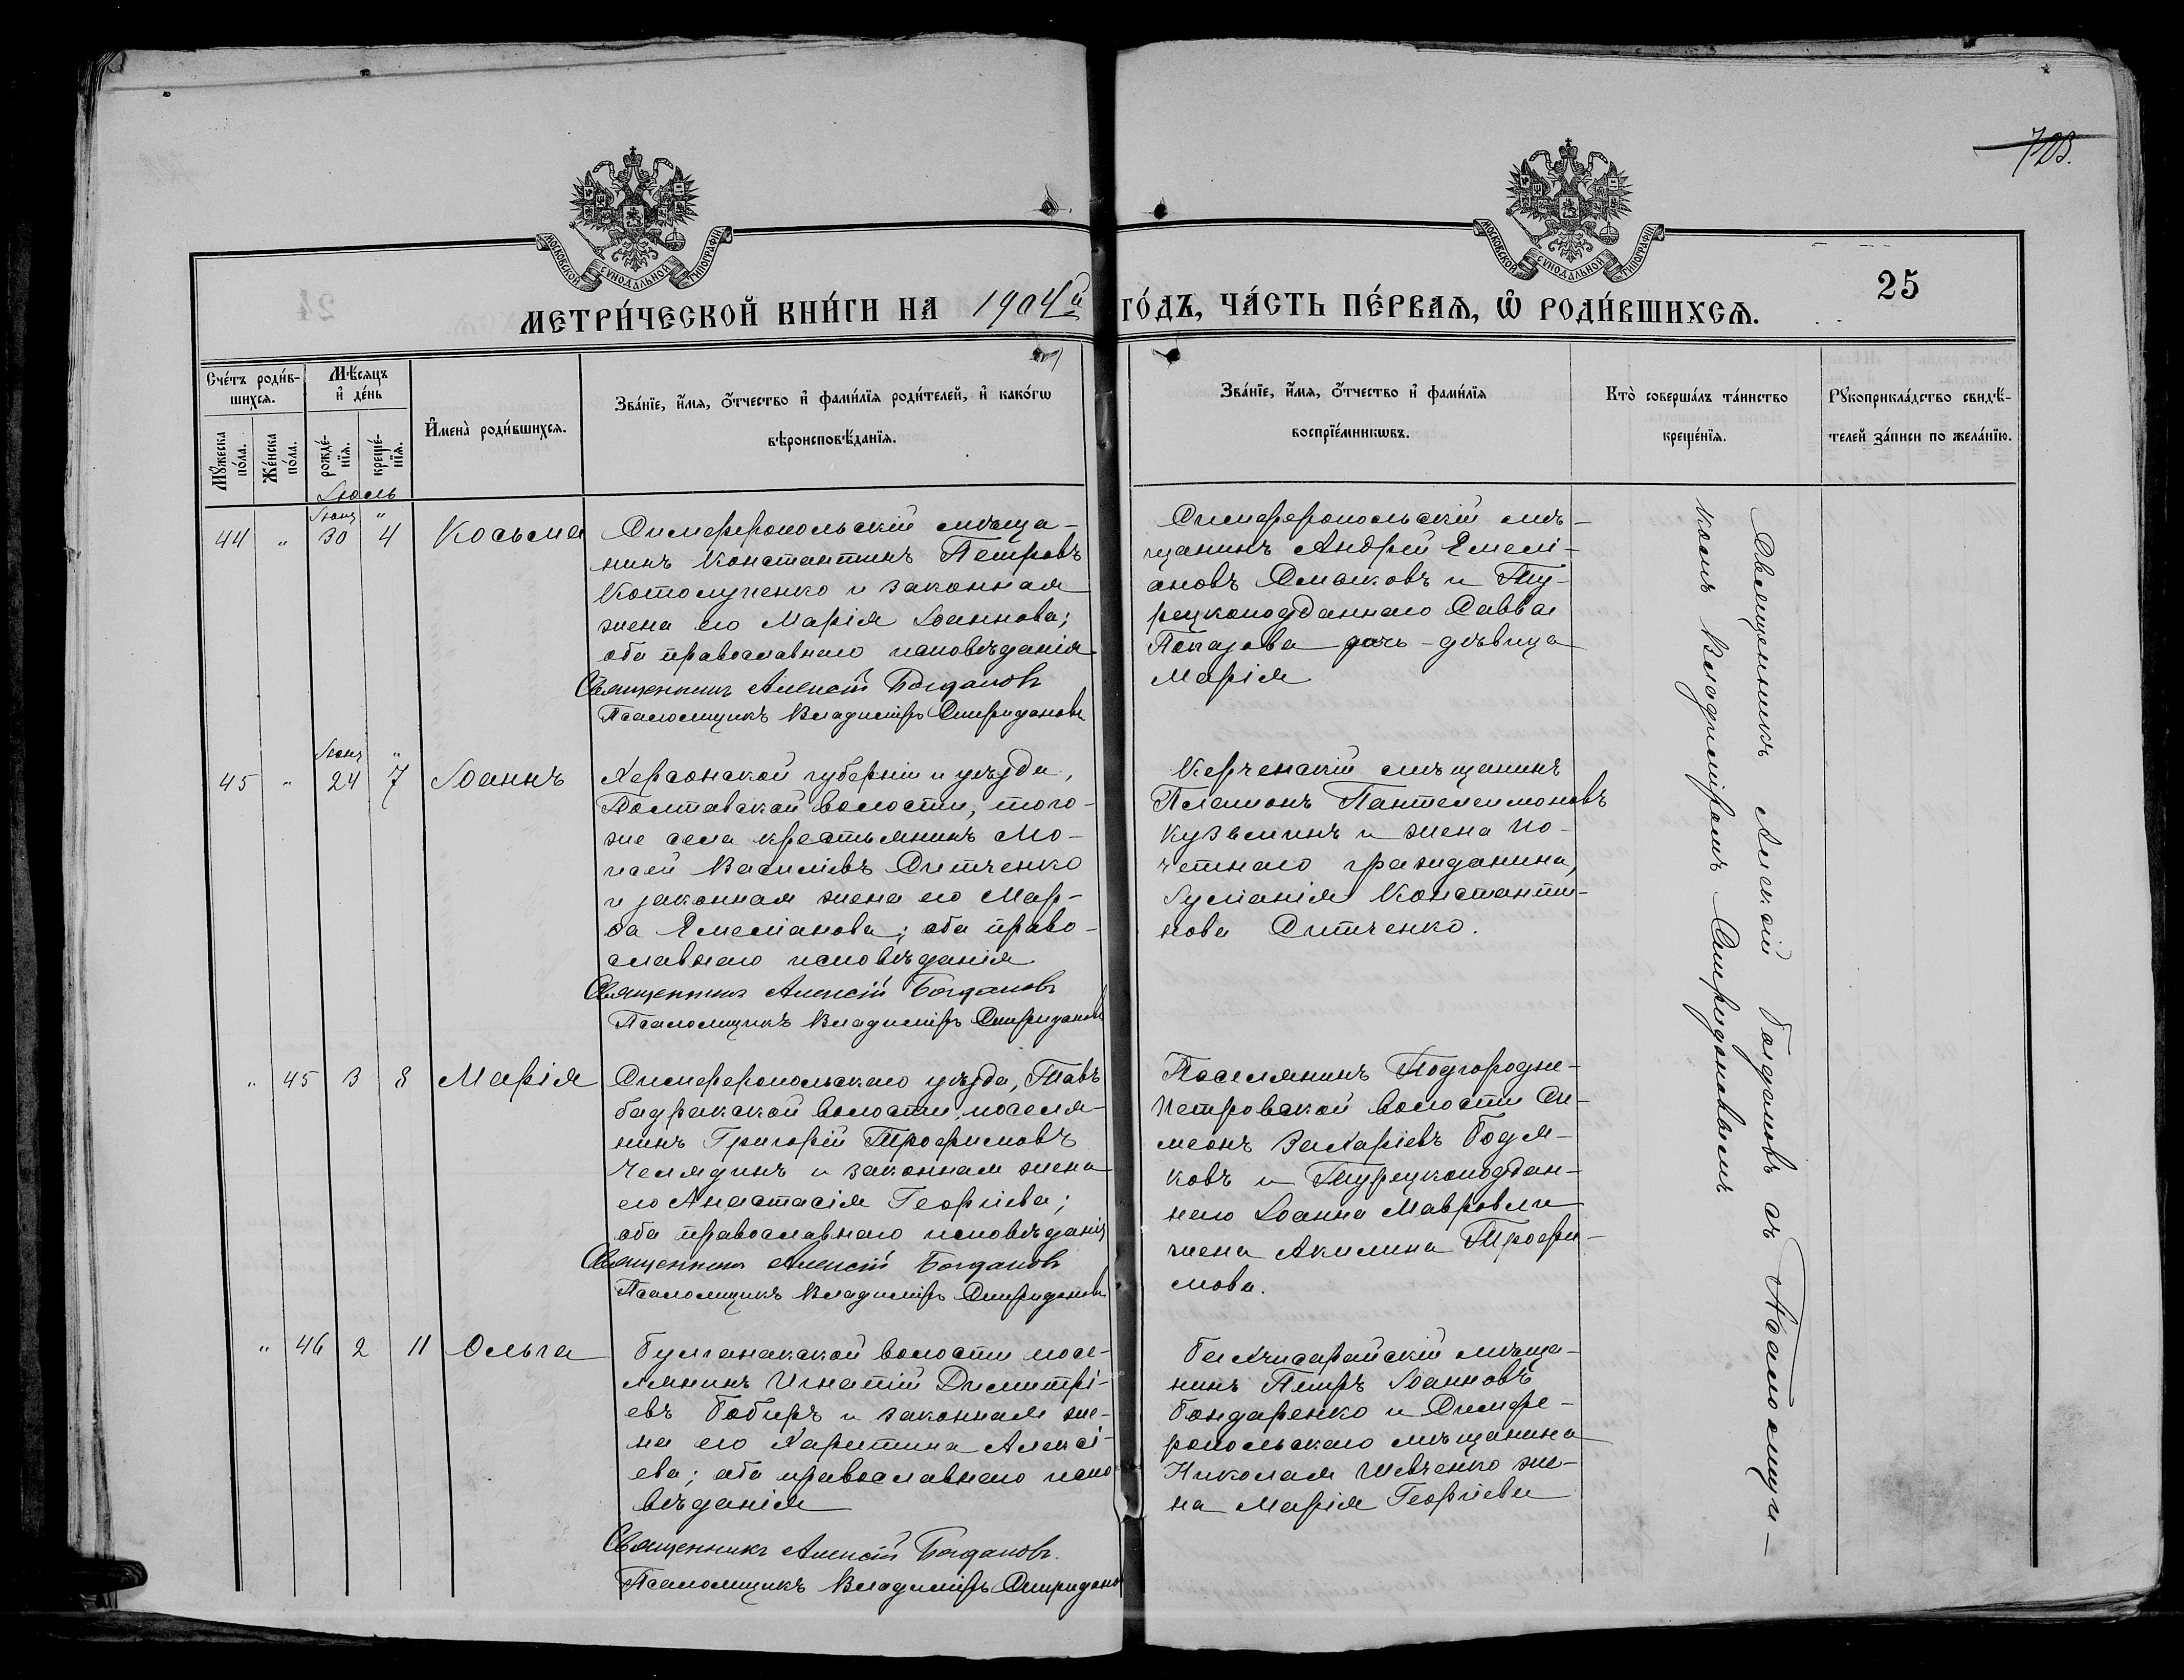 728.
МОСКОВСКОЙ СѴНОДАЛЬНОЙ ТИПОГРАФІИ
МОСКОВСКОЙ СѴНОДАЛЬНОЙ ТИПОГРАФІИ
25
МЕТРИ́ЧЕСКОЙ КНИ́ГИ НА 1904й ГО́ДЪ, ЧА́СТЬ ПЕ́РВАѦ, Ѡ҆ РОДИ́ВШИХСѦ.
Сче́тъ роди́в-
шихсѧ.
Мꙋ́жеска
по́ла.
Же́нска
по́ла.
Мѣ́сѧцъ
и҆ де́нь
рожде́-
нїѧ.
креще́-
нїѧ.
И҆мена̀ роди́вшихсѧ.
Зва́нїе, и҆́мѧ, ѻ҆́тчество и҆ фами́лїѧ роди́телей, и҆ како́гѡ
вѣроисповѣ́данїѧ.
Зва́нїе, и҆́мѧ, ѻ҆́тчество и҆ фами́лїѧ
воспрїе́мникѡвъ.
Кто̀ соверша́лъ та́инство
креще́нїѧ.
Рꙋкоприкла́дство свидѣ́-
телей за́писи по жела́нїю.
Іюль
44 " Іюня 30 " 4 Косьма
Симферопольскій мѣща-
нинъ Константинъ Петровъ
Котолупенко и законная
жена его Марія Іоаннова;
оба православнаго исповѣданія
Священникъ Алексій Богдановъ
Псаломщикъ Владиміръ Спиридоновъ
Симферопольскій мѣ-
щанинъ Андрей Емелі-
ановъ Смаковъ и Ту-
рецкоподданнаго Саввы
Показова дочь-дѣвица
Марія
45 " Іюня 24 " 7 Іоаннъ
Херсонской губерніи и уѣзда,
Полтавской волости, того-
же села крестьянинъ Мо-
исей Василіевъ Ситченко
и законная жена его Мар-
ѳа Емеліанова; оба право-
славнаго исповѣданія
Священникъ Алексій Богдановъ
Псаломщикъ Владиміръ Спиридоновъ
Керченскій мѣщанинъ
Платонъ Пантелеимоновъ
Кузьминъ и жена по-
четнаго гражданина,
Іуліанія Константи-
нова Ситченко.
" 45 3 8 Марія
Симферопольскаго уѣзда, Тавъ
бадракской волости, поселя-
нинъ Григорій Трофимовъ
Челядинъ и законная жена
его Анастасія Георгіева;
оба православнаго исповѣданія
Священникъ Алексій Богдановъ
Псаломщикъ Владиміръ Спиридоновъ
Поселянинъ Подгородне-
Петровской волости Си-
меонъ Захаріевъ Годя-
ковъ и Турецкоподдан-
наго Іоанна Мавровли
жена Акилина Трофи-
мова.
" 46 2 11 Ольга
Булганакской волости посе-
лянинъ Игнатій Димитрі-
евъ Бобырь и законная же-
на его Харитина Алексі-
ева; оба православнаго испо
вѣданія
Священникъ Алексій Богдановъ.
Псаломщикъ Владиміръ Спиридонов
Бахчисарайскій мѣща-
нинъ Петръ Іоанновъ
Бондаренко и Симфе-
ропольскаго мѣщанина
Николая Шевченко же-
на Марія Георгіева
Священникъ Алексій Богдановъ съ Псаломщи-
комъ Владиміромъ Спиридоновымъ